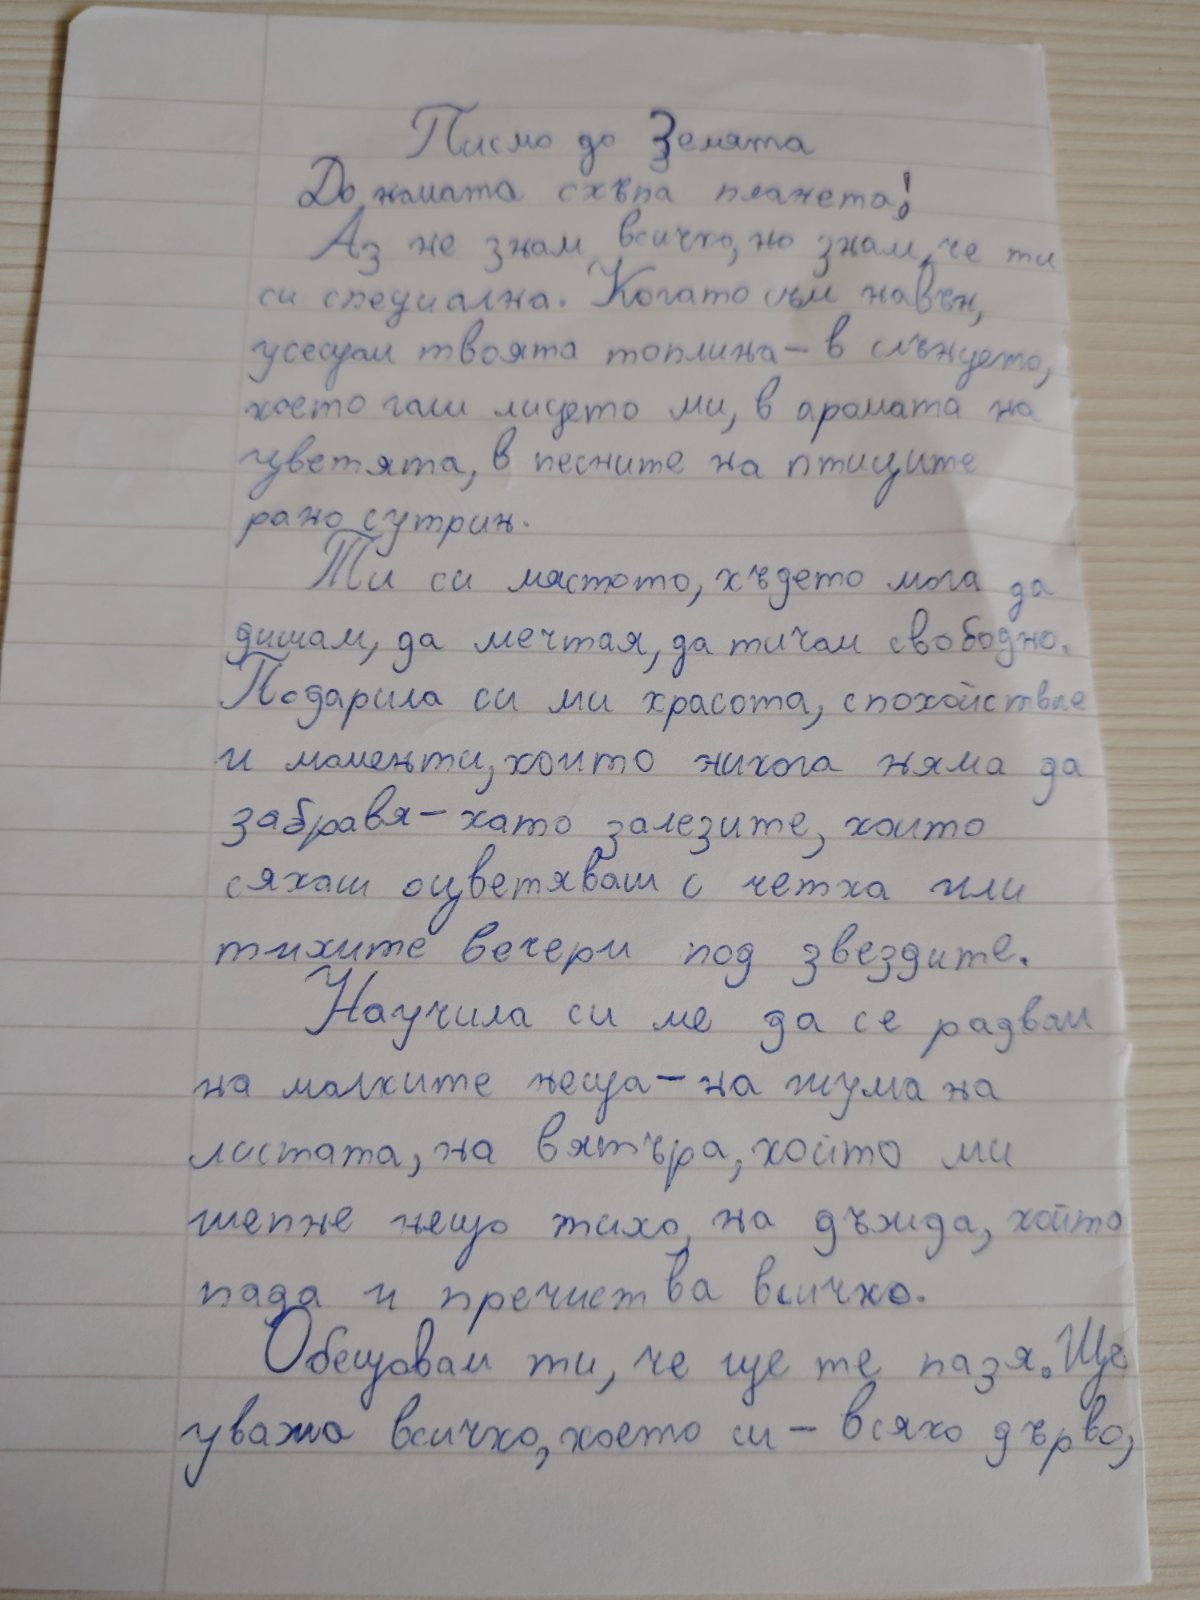 Писмо до Земята
До нашата скъпа планета!
Аз не знам всичко, но знам, че ти
си специална. Когато съм навън,
усещам твоята топлина – в слънцето,
което гали лицето ми, в аромата на
цветята, в песните на птиците
рано сутрин.
Ти си мястото, където мога да
дишам, да мечтая, да тичам свободно.
Подарила си ми красота, спокойствие
и моменти, които никога няма да
забравя – като залезите, които
сякаш оцветяваш с четка или
тихите вечери под звездите.
Научила си ме да се радвам
на малките неща – на шума на
листата, на вятъра, който ми
шепне нещо тихо, на дъжда, който
пада и пречиства всичко.
Обещавам ти, че ще те пазя. Ще
уважа всичко, което си – всяко дърво,